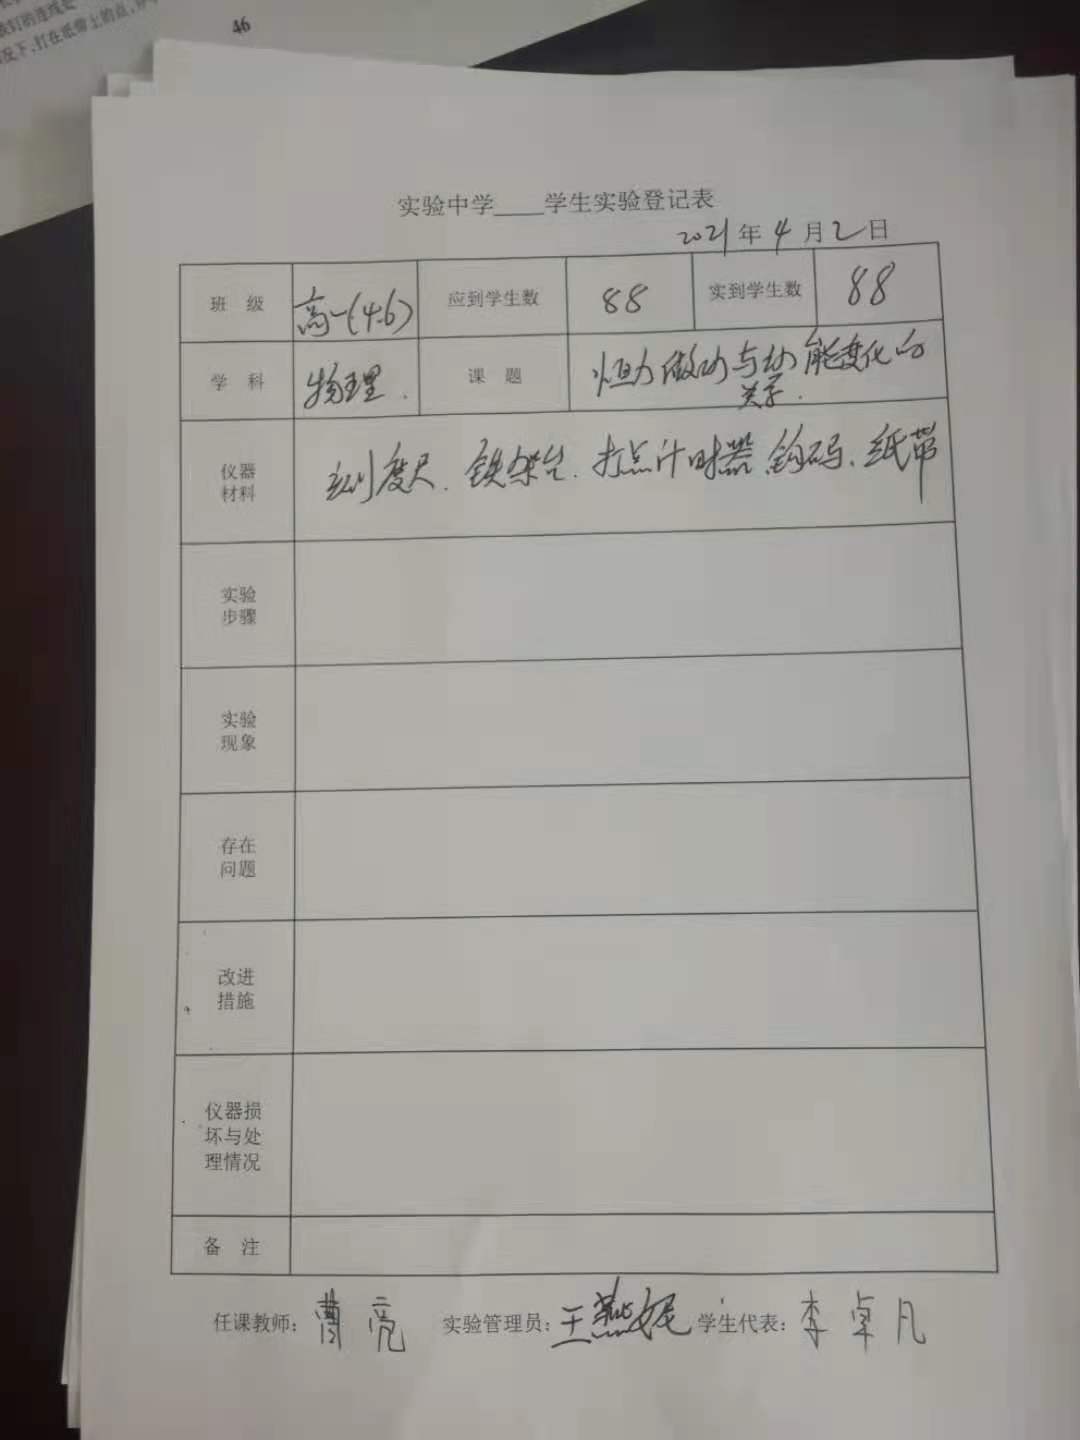 46
情况下,打在纸带上的点,
实验中学____学生实验登记表
2021年4月2日
班 级 高一(4.6) 应到学生数 88 实到学生数 88
学 科 物理. 课 题 恒力做功与动能变化的
关系.
仪器
材料
刻度尺、铁架台、打点计时器、钩码、纸带
实验
步骤
实验
现象
存在
问题
改进
措施
仪器损
坏与处
理情况
备 注
任课教师: 曹亮 实验管理员: 王燕妮 学生代表: 李卓凡